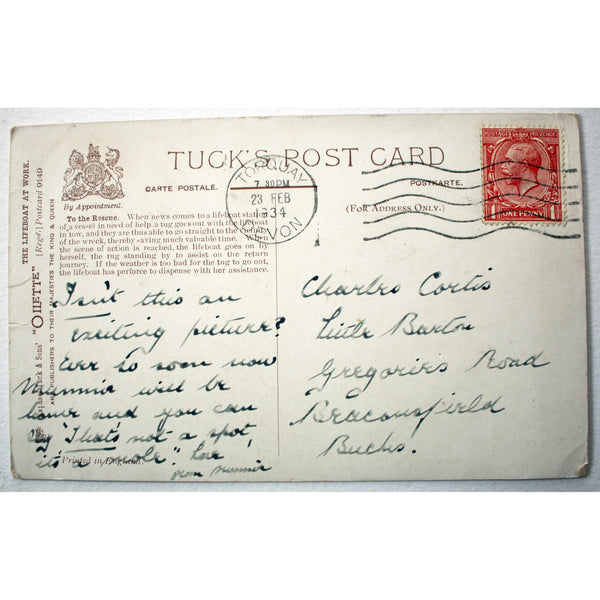 TUCK'S POST CARD
CARTE POSTALE.
POSTKARTE.
(FOR ADDRESS ONLY.)
By Appointment.
To the Rescue. When news comes to a lifeboat station
of a vessel in need of help, a tug goes out with the lifeboat
in tow, and they are thus able to go straight to the
of the wreck, thereby saving much valuable time. When
the scene of action is reached, the lifeboat goes on by
herself, the tug standing by to assist on the return
journey. If the weather is too bad for the tug to go out,
the lifeboat has perforce to dispense with her assistance.
THE LIFEBOAT AT WORK.
[Regd.] Postcard 9149
"OILETTE"
& Sons'
PUBLISHERS TO THEIR MAJESTIES THE KING & QUEEN
TORQUAY
7.30PM
23 FEB
1934
DEVON
POSTAGE REVENUE
1 ONE PENNY 1
Isn't this an
exciting picture?
Ever so soon now
Mummie will be
home and you can
say "That's not a spot,
it's a mole" Love
from Mummie
Printed in England.
Charles Cortis
Little Barton
Gregories Road
Beaconsfield
Bucks.